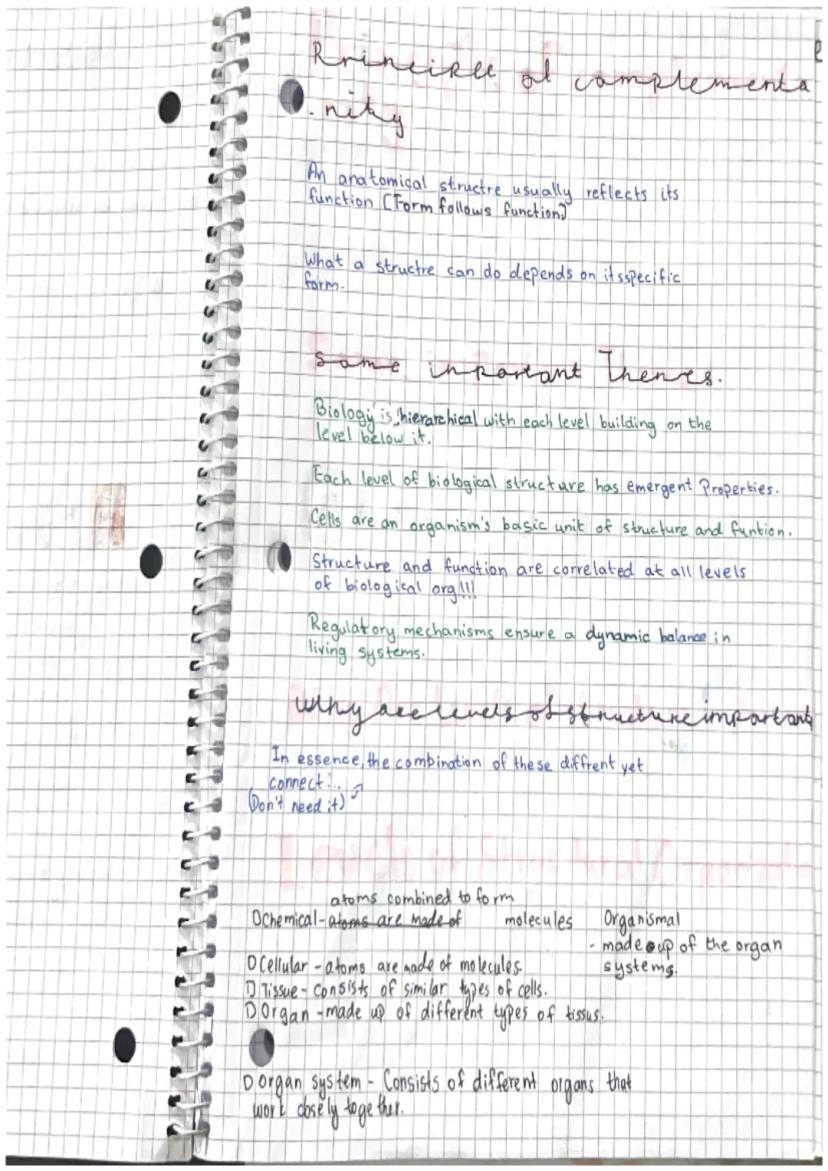 Principle of complementa
nity
An anatomical structre usually reflects its
function (Form follows function)
What a structre can do depends on its specific
form.
Some inportant Themes.
Biology is hierarchical with each level building on the
level below it.
Each level of biological structure has emergent Properties.
Cells are an organism's basic unit of structure and funtion.
Structure and function are correlated at all levels
of biological org!!!
Regulatory mechanisms ensure a dynamic balance in
living systems.
Why are levels of structure important
In essence, the combination of these diffrent yet
connect...
(Don't need it)
atoms combined to form
Chemical - atoms are made of molecules
Organismal
- made up of the organ
systems.
Cellular - atoms are made of molecules.
Tissue - Consists of similar types of cells.
Organ - made up of different types of tissus.
Organ system - Consists of different organs that
work closely together.